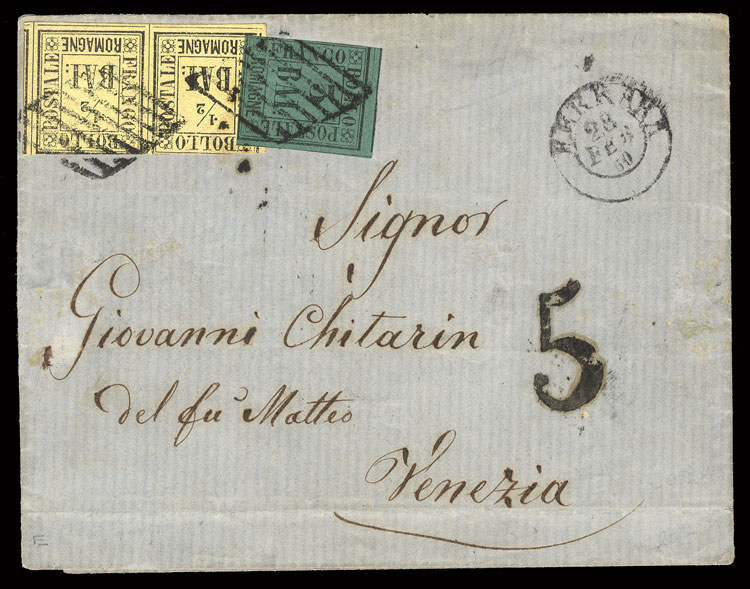 FRANCO
BOLLO
POSTALE
ROMAGNE
BAI
1/2
FRANCO
BOLLO
POSTALE
ROMAGNE
BAI
1/2
FRANCO
BOLLO
POSTALE
BAI
FERRARA
28
FEB
60
Signor
Giovanni Chitarin
5
del fu Matteo
Venezia
E